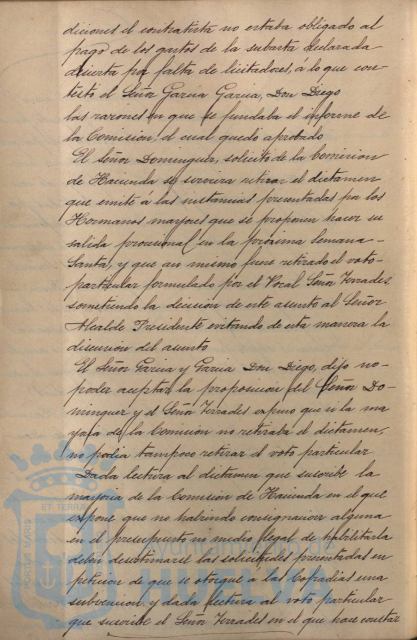 diciones el contratista no estaba obligado al
pago de los gastos de la subasta declarada
desierta por falta de licitadores, á lo que con-
testó el Señor Garcia Garcia, Don Diego
las razones en que se fundaba el informe de
la Comision, el cual quedó aprobado
El Señor Dominguez, solicitó de la Comision
de Hacienda se serviera retirar el dictamen
que emite á las instancias presentadas por los
Hermanos mayores que se proponen hacer su
salida procesional en la próxima Semana-
Santa, y que asi mismo fuese retirado el voto-
particular formulado por el Vocal Señor Terrades,
sometiendo la decision de este asunto al Señor
Alcalde Presidente evitando de esta manera la
discusion del asunto
El Señor Garcia y Garcia Don Diego, dijo no-
poder aceptar la proposicion del Señor Do-
minguez y el Señor Terrades expuso que si la ma
yoria de la Comision no retiraba el dictamen,
no podia tampoco retirar el voto particular
Dada lectura al dictamen que suscribe la
mayoria de la Comision de Hacienda en el que
expone que no habiendo consignacion alguna
en el presupuesto ni medio legal de habilitarla
deben desestimarse las solicitudes presentadas en
peticion de que se otorgue a las Cofradias una
subvencion, y dada lectura al voto particular
que suscribe el Señor Terrades en el que hace constar
ET TERRAE
PORTUS MARIS